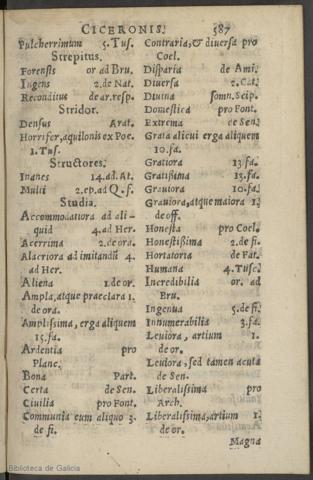 CICERONIS. 587
Pulcherrimum 5. Tus.
Strepitus.
Forensis or ad Bru.
Ingens 2. de Nat.
Reconditus de ar. resp.
Stridor.
Densus Arat.
Horrifer, aquilonis ex Poe.
1. Tus.
Structores.
Inanes 14. ad. At.
Multi 2. ep. ad Q. f.
Studia.
Accommodatiora ad ali-
quid 4. ad Her.
Acerrima 2. de ora.
Alacriora ad imitandū 4.
ad Her.
Aliena 1. de or.
Ampla, atque praeclara 1.
de ora.
Amplissima, erga aliquem
15. fa.
Ardentia pro
Planc.
Bona Part.
Certa de Sen.
Ciuilia pro Font.
Communia cum aliquo 3.
de fi.
Contraria, & diuersa pro
Coel.
Disparia de Ami.
Diuersa 2. Cat.
Diuina somn. Scip.
Domestica pro Font.
Extrema de Sen.
Grata alicui erga aliquem
10. fa.
Gratiora 13. fa.
Gratissima 13. fa.
Grauiora 10. fa.
Grauiora, atque maiora 1.
de off.
Honesta pro Coel.
Honestissima 2. de fi.
Hortatoria de Fat.
Humana 4. Tusc.
Incredibilia or. ad
Bru.
Ingenua 5. de fi.
Innumerabilia 3. fa.
Leuiora, artium 1.
de or.
Leuiora, sed tamen acuta
de Sen.
Liberalissima pro
Arch.
Liberalissima, artium 1.
de or.
Magna
Biblioteca de Galicia